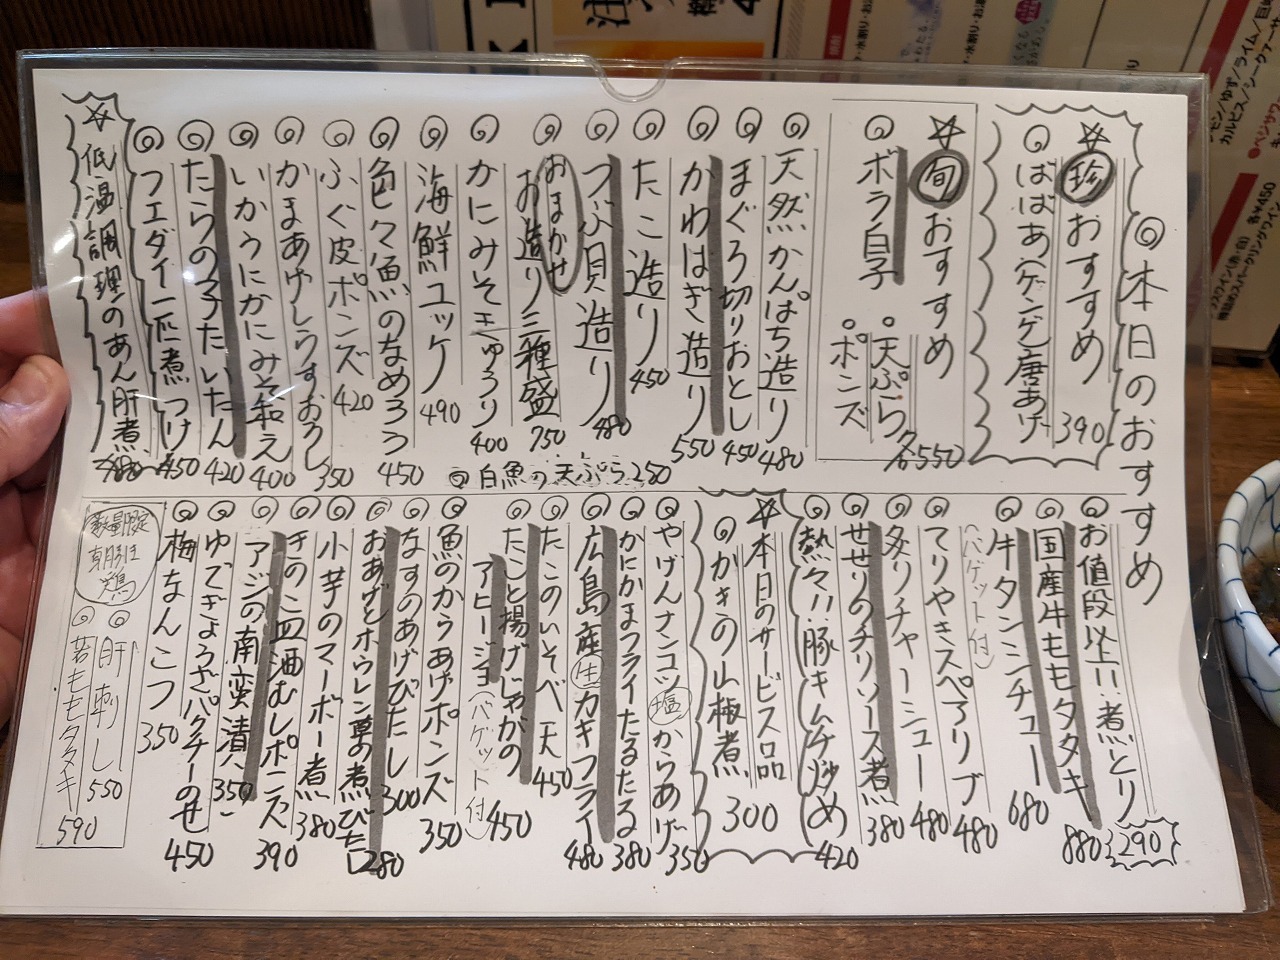 ◎本日のおすすめ
☆珍おすすめ
◎ばばあ(ゲンゲ)唐あげ 390
☆旬おすすめ
◎ボラ白子 。天ぷら 。ポンズ 各550
◎天然かんぱち造り 480
◎まぐろ切りおとし 450
◎かわはぎ造り 550
◎たこ造り 450
◎つぶ貝造り 480
◎おまかせお造り三種盛 750
◎かにみそきゅうり 400
◎海鮮ユッケ 490
◎色々魚のなめろう 450
◎ふぐ皮ポンズ 420
◎かまあげしらすおろし 350
◎いかうにかにみそ和え 400
◎たらの子たいたん 420
◎フエダイ一匹煮つけ 450
☆低温調理のあん肝煮 480
◎白魚の天ぷら 250
◎お値段以上!!煮どり 290
◎国産牛ももタタキ 880
◎牛タンシチュー 680
(バゲット付)
◎てりやきスペアリブ 480
◎炙りチャーシュー 480
◎せせりのチリソース煮 380
◎熱々!!豚キムチ炒め 420
☆本日のサービス品
◎かきの山椒煮 300
◎やげんナンコツ塩からあげ 350
◎かにかまフライたるたる 380
◎広島産生カキフライ 480
◎たこのいそべ天 450
◎たこと揚げじゃがの
アヒージョ(バゲット付) 450
◎魚のからあげポンズ 350
◎なすのあげびたし 300
◎おあげとホウレン草の煮びたし 280
◎小芋のマーボー煮 380
◎きのこ皿酒むしポンズ 390
◎アジの南蛮漬 350
◎ゆでぎょうざパクチーのせ 450
◎梅なんこつ 350
数量限定
朝引き
鶏
◎肝刺し 550
◎若ももタタキ 590
カルピス/シークァーサー
各¥450